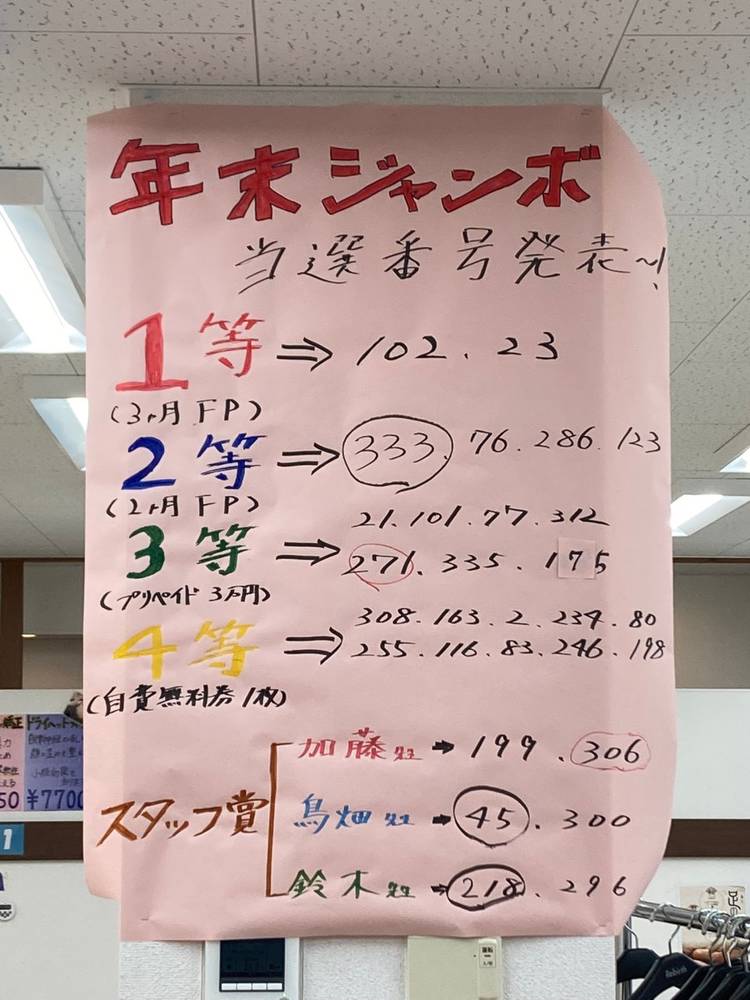 年末ジャンボ
当選番号発表〜!
1等 ⇒ 102. 23
(3ヶ月 FP)
2等 ⇒ 333. 76. 286. 123
(2ヶ月 FP)
3等 ⇒ 21. 101. 77. 312
271. 335. 175
(プリペイド 3万円)
4等 ⇒ 308. 163. 2. 234. 80
255. 116. 83. 246. 198
(自費無料券 1枚)
スタッフ賞
加藤 ➡ 199. 306
鳥畑 ➡ 45. 300
鈴木 ➡ 218. 296
矯正
ドライヘッド
50
¥7700
1
運転
入/切
Rebirth